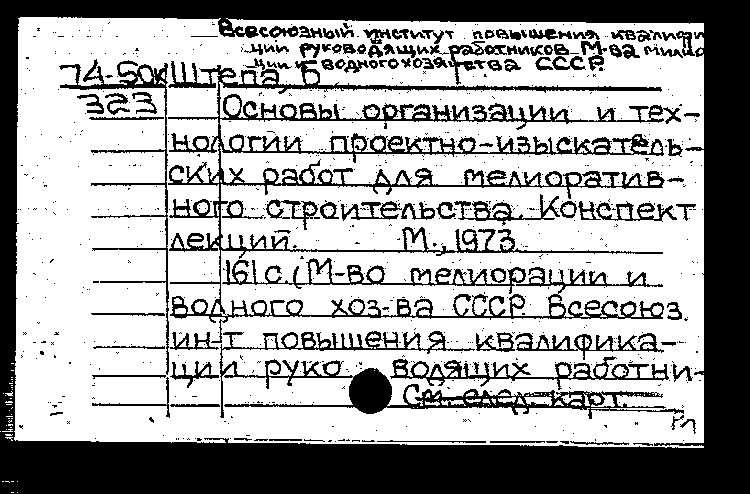 Всесоюзный институт повышения квалифи
ции руководящих работников М-ва мелио
ции и водного хозяйства СССР
74-50к Штепа, Б
323 Основы организации и тех-
нологии проектно-изыскатель-
ских работ для мелиоратив-
ного строительства. Конспект
лекций. М., 1973.
161 с. (М-во мелиорации и
водного хоз-ва СССР. Всесоюз.
ин-т повышения квалифика-
ции руко водящих работни-
См. след. карт.